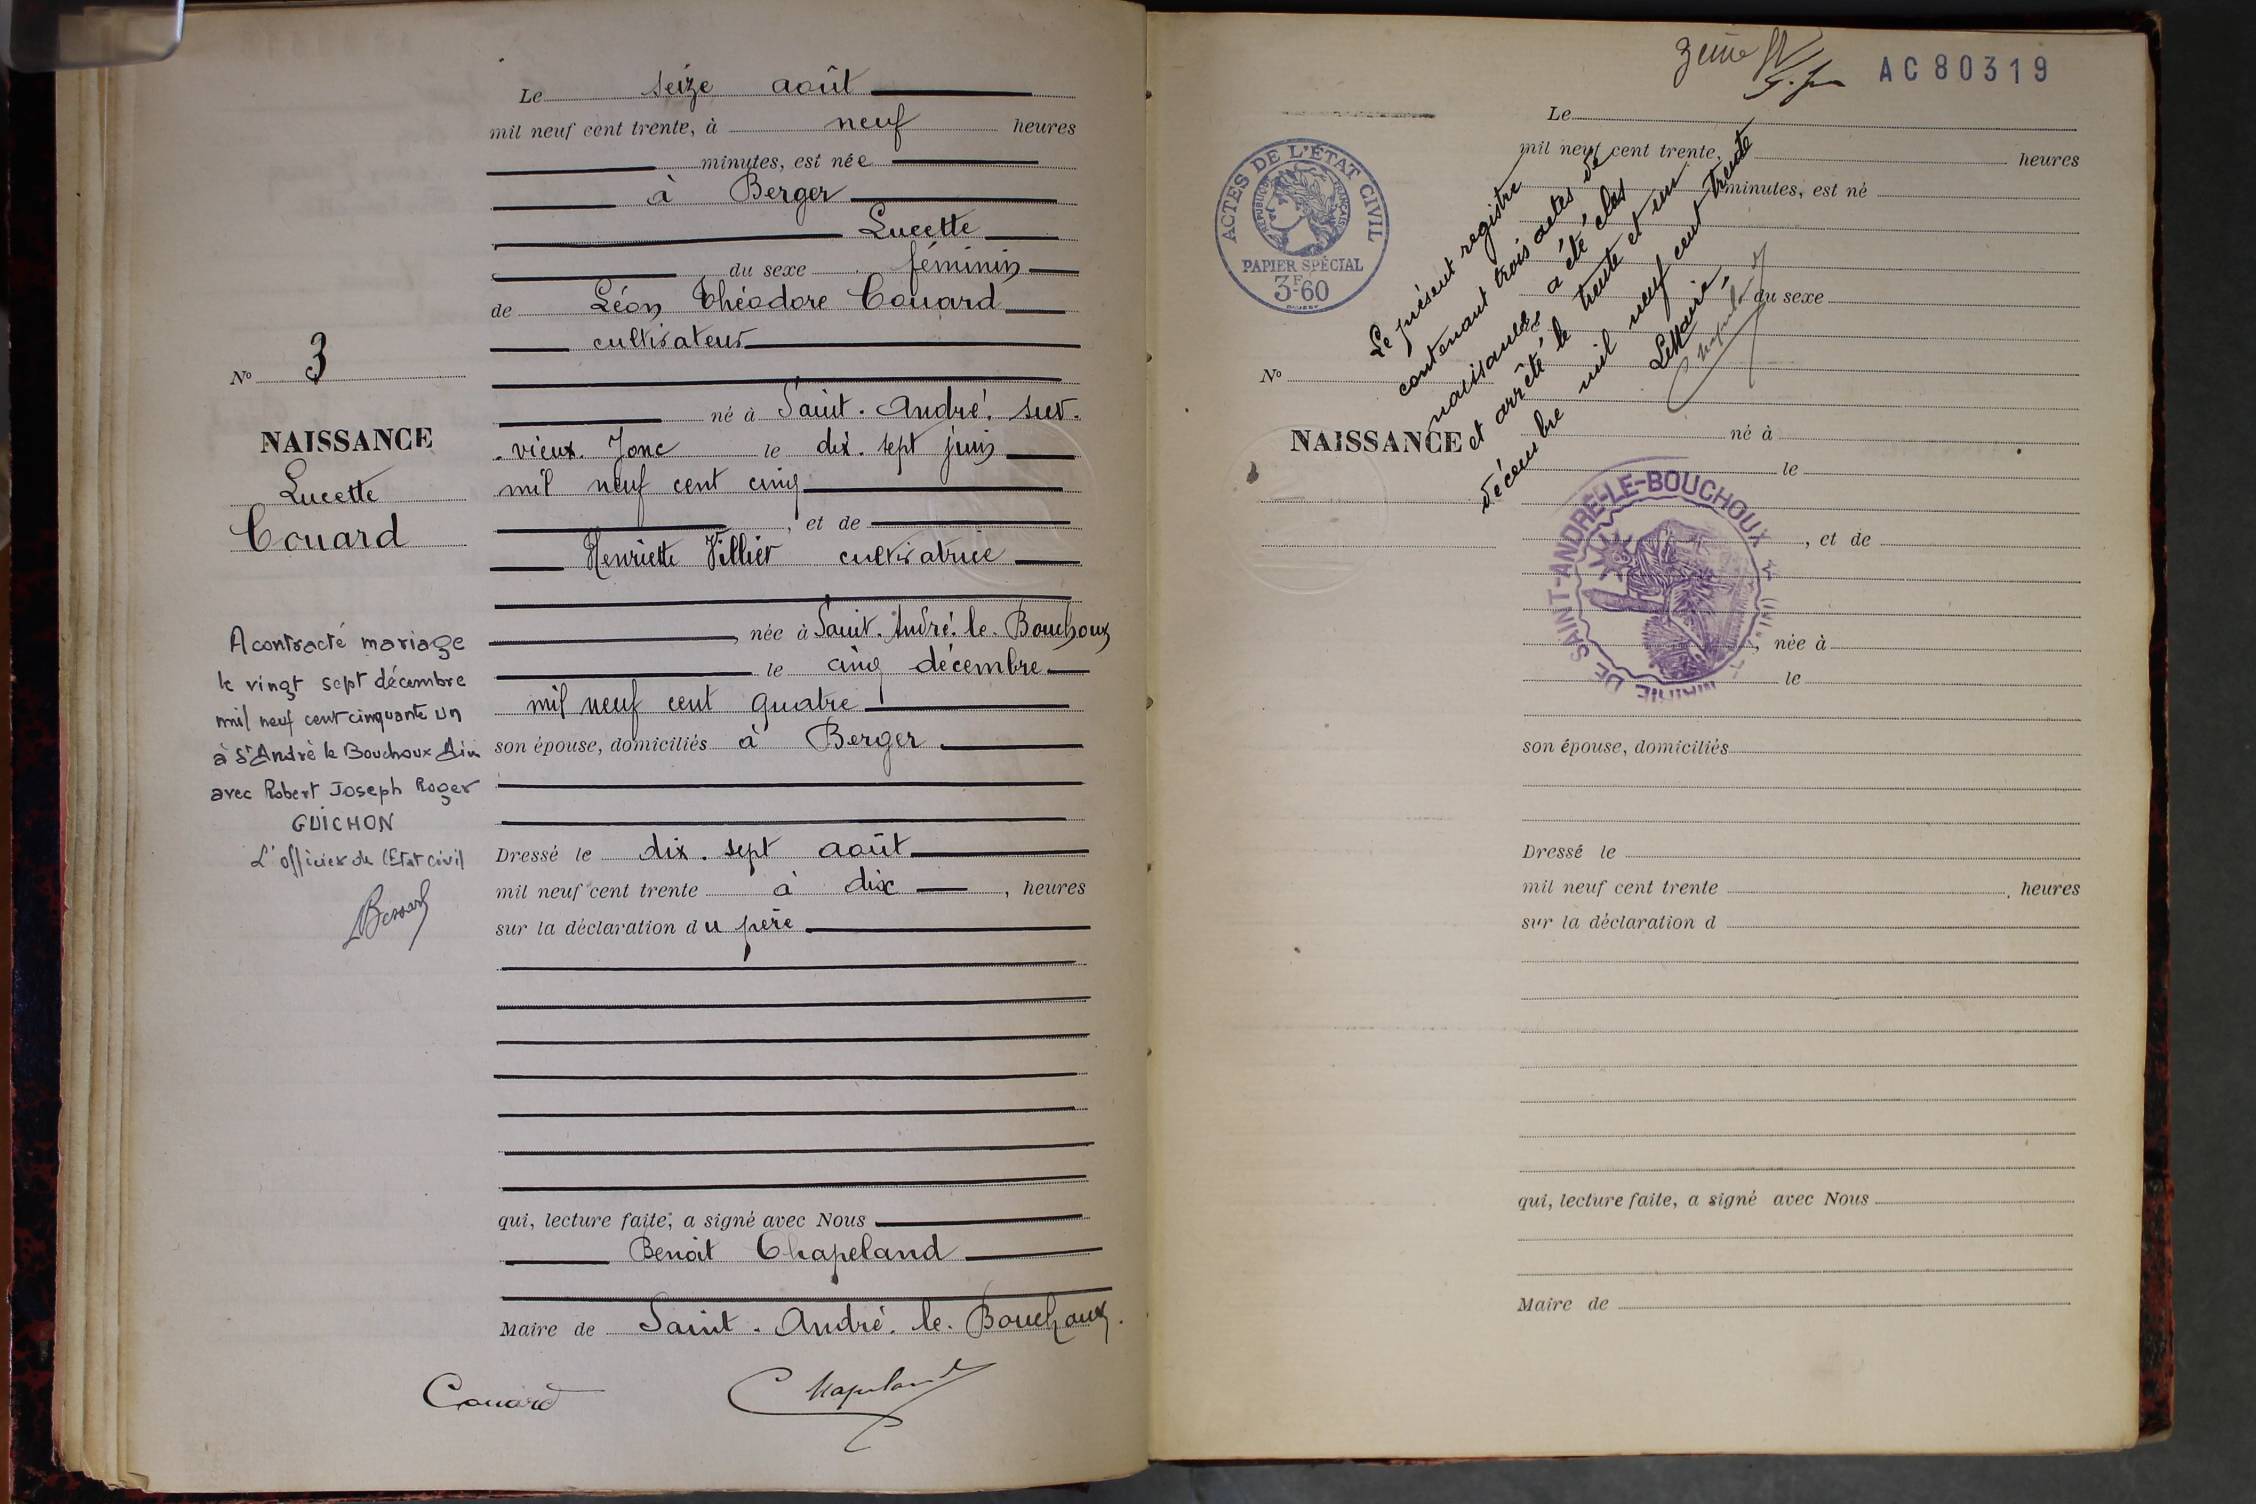 Le seize août
mil neuf cent trente, à neuf heures
minutes, est née
à Berger
Lucette
du sexe féminin
de Léon Théodore Couard
cultivateur
né à Saint. André. sur.
. vieux. Jonc le dix. sept juin
mil neuf cent cinq
, et de
Henriette Villier cultivatrice
, née à Saint. André. le. Bouchoux
le cinq décembre
mil neuf cent quatre
son épouse, domiciliés à Berger
Dressé le dix. sept août
mil neuf cent trente à dix , heures
sur la déclaration du père
qui, lecture faite, a signé avec Nous
Benoit Chapeland
Maire de Saint. André. le. Bouchoux.
Couard Chapeland
No 3
NAISSANCE
Lucette
Couard
A contracté mariage
le vingt sept décembre
mil neuf cent cinquante un
à St André le Bouchoux Ain
avec Robert Joseph Roger
GUICHON
L'officier de l'Etat civil
AC80319
ACTES DE L'ÉTAT CIVIL
RÉPUBLIQUE FRANÇAISE
PAPIER SPÉCIAL
3F.60
Le
mil neuf cent trente, heures
minutes, est né
du sexe
Le présent registre
contenant trois actes de
naissances a été clos
et arrêté le trente et un
décembre mil neuf cent trente
Le Maire,
Chapeland
No
NAISSANCE
né à
le
, et de
MAIRIE DE SAINT-ANDRÉ-LE-BOUCHOUX (AIN)
, née à
le
son épouse, domiciliés
Dressé le
mil neuf cent trente , heures
sur la déclaration d
qui, lecture faite, a signé avec Nous
Maire de